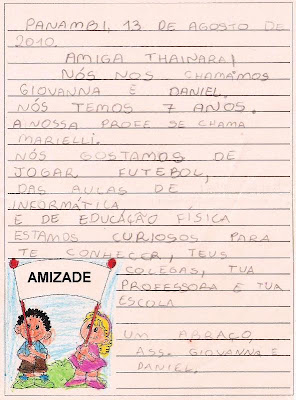 PANAMBI, 13 DE AGOSTO DE
2010.
AMIGA THAINARA!
NÓS NOS CHAMAMOS
GIOVANNA E DANIEL.
NÓS TEMOS 7 ANOS.
A NOSSA PROFE SE CHAMA
MARIELLI.
NÓS GOSTAMOS DE
JOGAR FUTEBOL,
DAS AULAS DE
INFORMÁTICA
E DE EDUCAÇÃO FÍSICA
ESTAMOS CURIOSOS PARA
TE CONHECER, TEUS
COLEGAS, TUA
PROFESSORA E TUA
ESCOLA
AMIZADE
UM ABRAÇO,
ASS. GIOVANNA E
DANIEL.